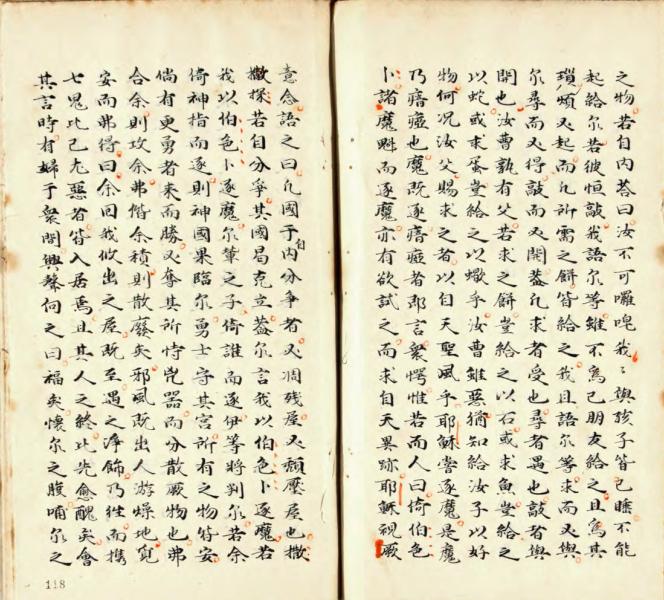 之物若自內荅曰汝不可囉唣我〻與孩子皆已睡不能
起給尔若彼恒敲我語尔等雖不為己朋友給之且為其
瑣煩必起而凡所需之餅皆給之我且語尔等求而必與
尔尋而必得敲而必開蓋凡求者受也尋者遇也敲者與
開也汝曹孰有父若求之餅豈給之以石或求魚豈給之
以蛇或求蛋豈給之以蠍乎汝曹雖惡猶知給汝子以好
物何况汝父賜求之者以自天聖風乎耶穌嘗逐魔是魔
乃瘖瘂也魔既逐瘖瘂者即言衆愕惟若而人曰倚伯色
卜諸魔魁而逐魔亦有欲試之而求自天異跡耶穌視厥
意念語之曰凡國于自內分爭者必凋殘屋必頹壓屋也撒
撒探若自分爭其國曷克立蓋尔言我以伯色卜逐魔若
我以伯色卜逐魔尔輩之子倚誰而逐伊等將判尔若余
倚神指而逐則神國果臨尔勇士守其宮所有之物皆安
倘有更勇者来而勝必奪其所恃凭器而分散厥物也弗
合余則攻余弗偕余積則散廢矣邪風既出人游燥地覓
安而弗得曰余回我攸出之屋既至遇之淨飾乃徃而携
七鬼比己尤惡者皆入居焉且其人之終比先愈醜矣會
其言時有婦于衆間興聲向之曰福矣懷尔之腹哺尔之
118